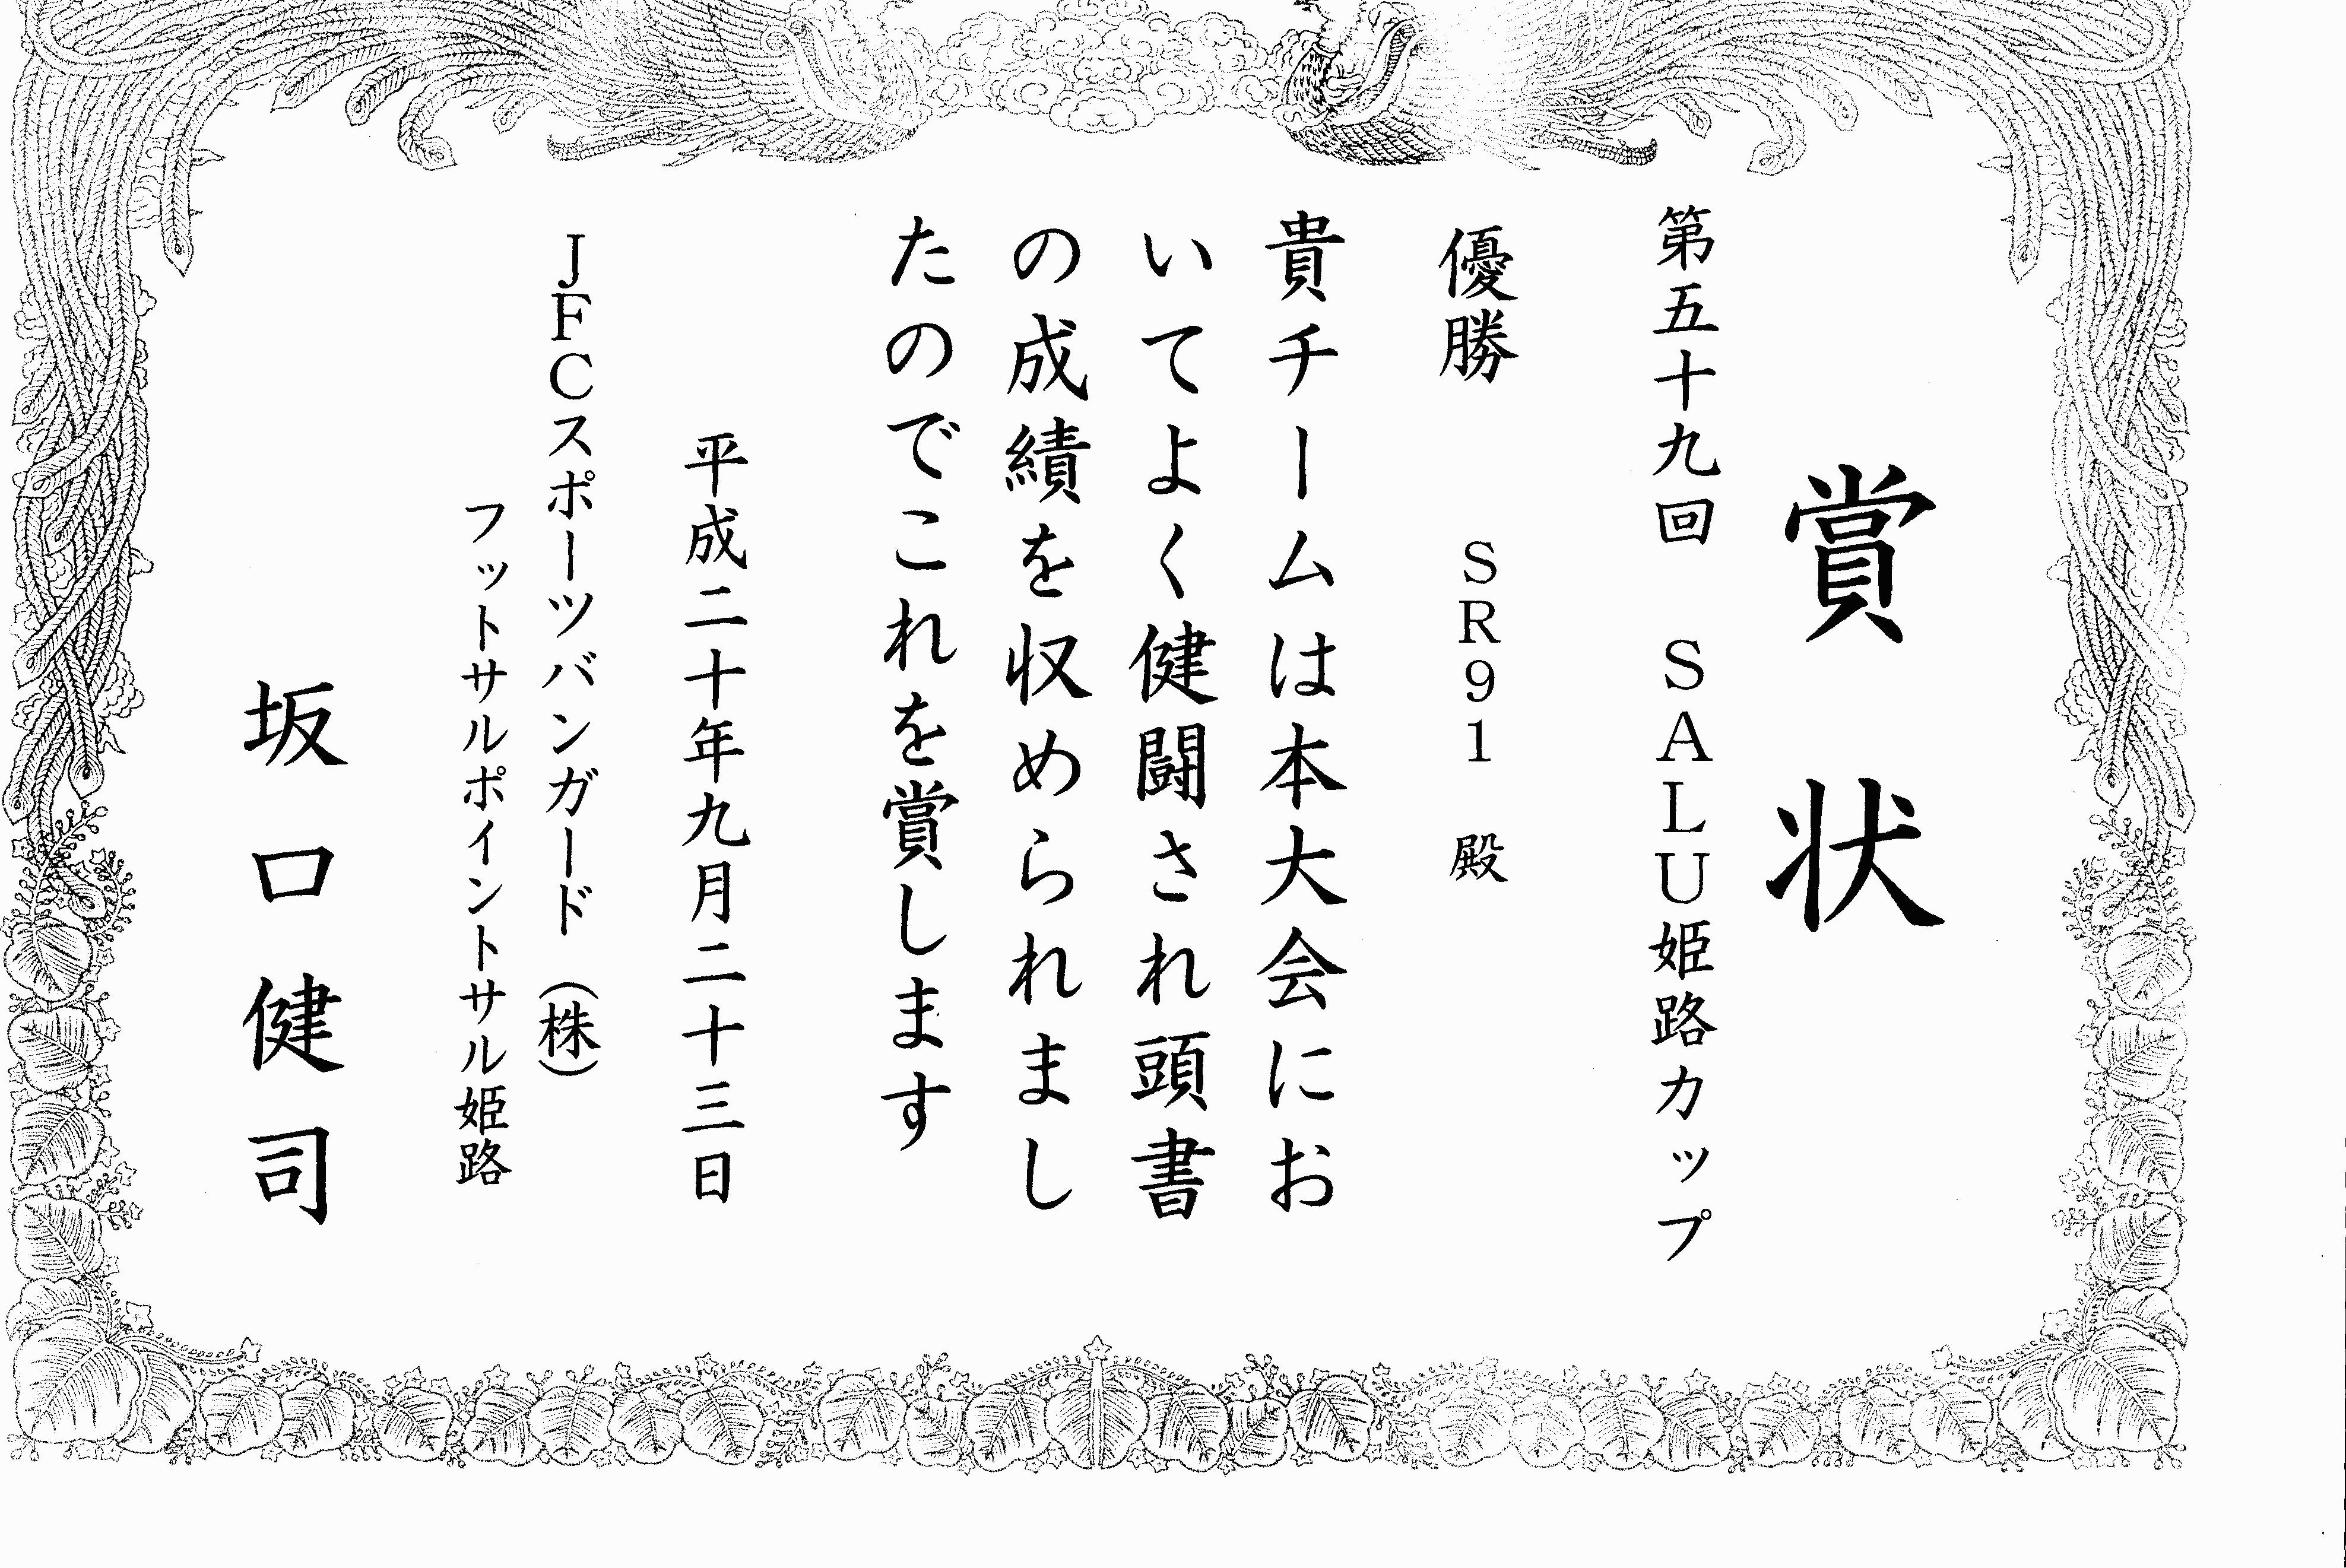 賞状
第五十九回　SALU姫路カップ
優勝　　SR91　殿
貴チームは本大会にお
いてよく健闘され頭書
の成績を収められまし
たのでこれを賞します
平成二十年九月二十三日
JFCスポーツバンガード（株）
フットサルポイントサル姫路
坂口健司